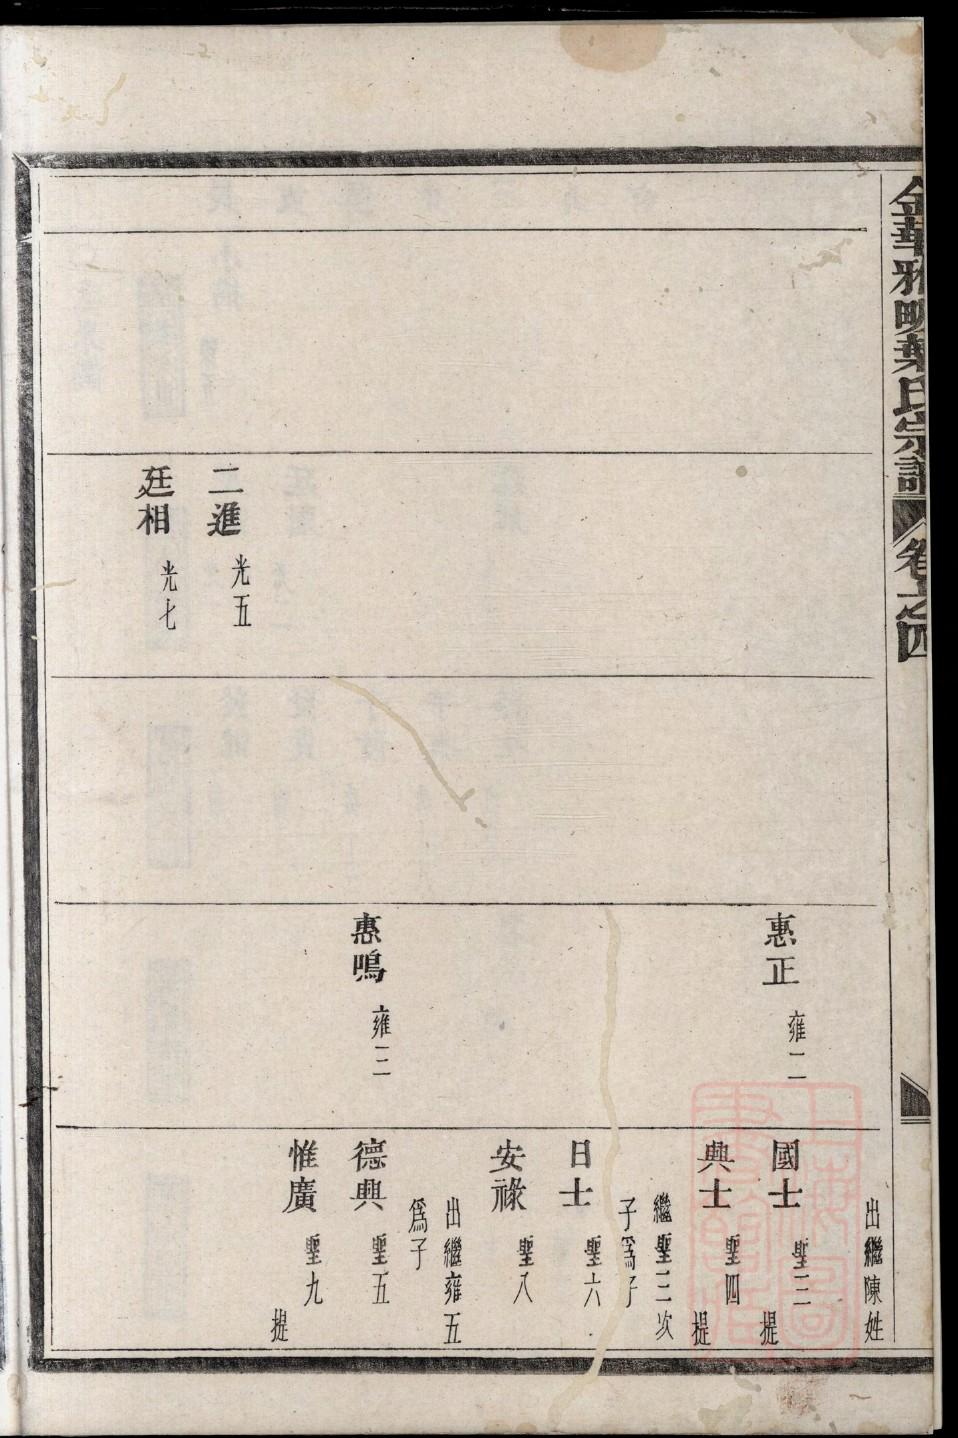 金華雅畈葉氏宗譜 卷之四
二進 光五
廷相 光七
惠正 雍二
惠鳴 雍三
出繼陳姓
國士 聖三 提
興士 聖四 提
繼聖三次
子爲子
日士 聖六
安祿 聖八
出繼雍五
爲子
德興 聖五
惟廣 聖九
提